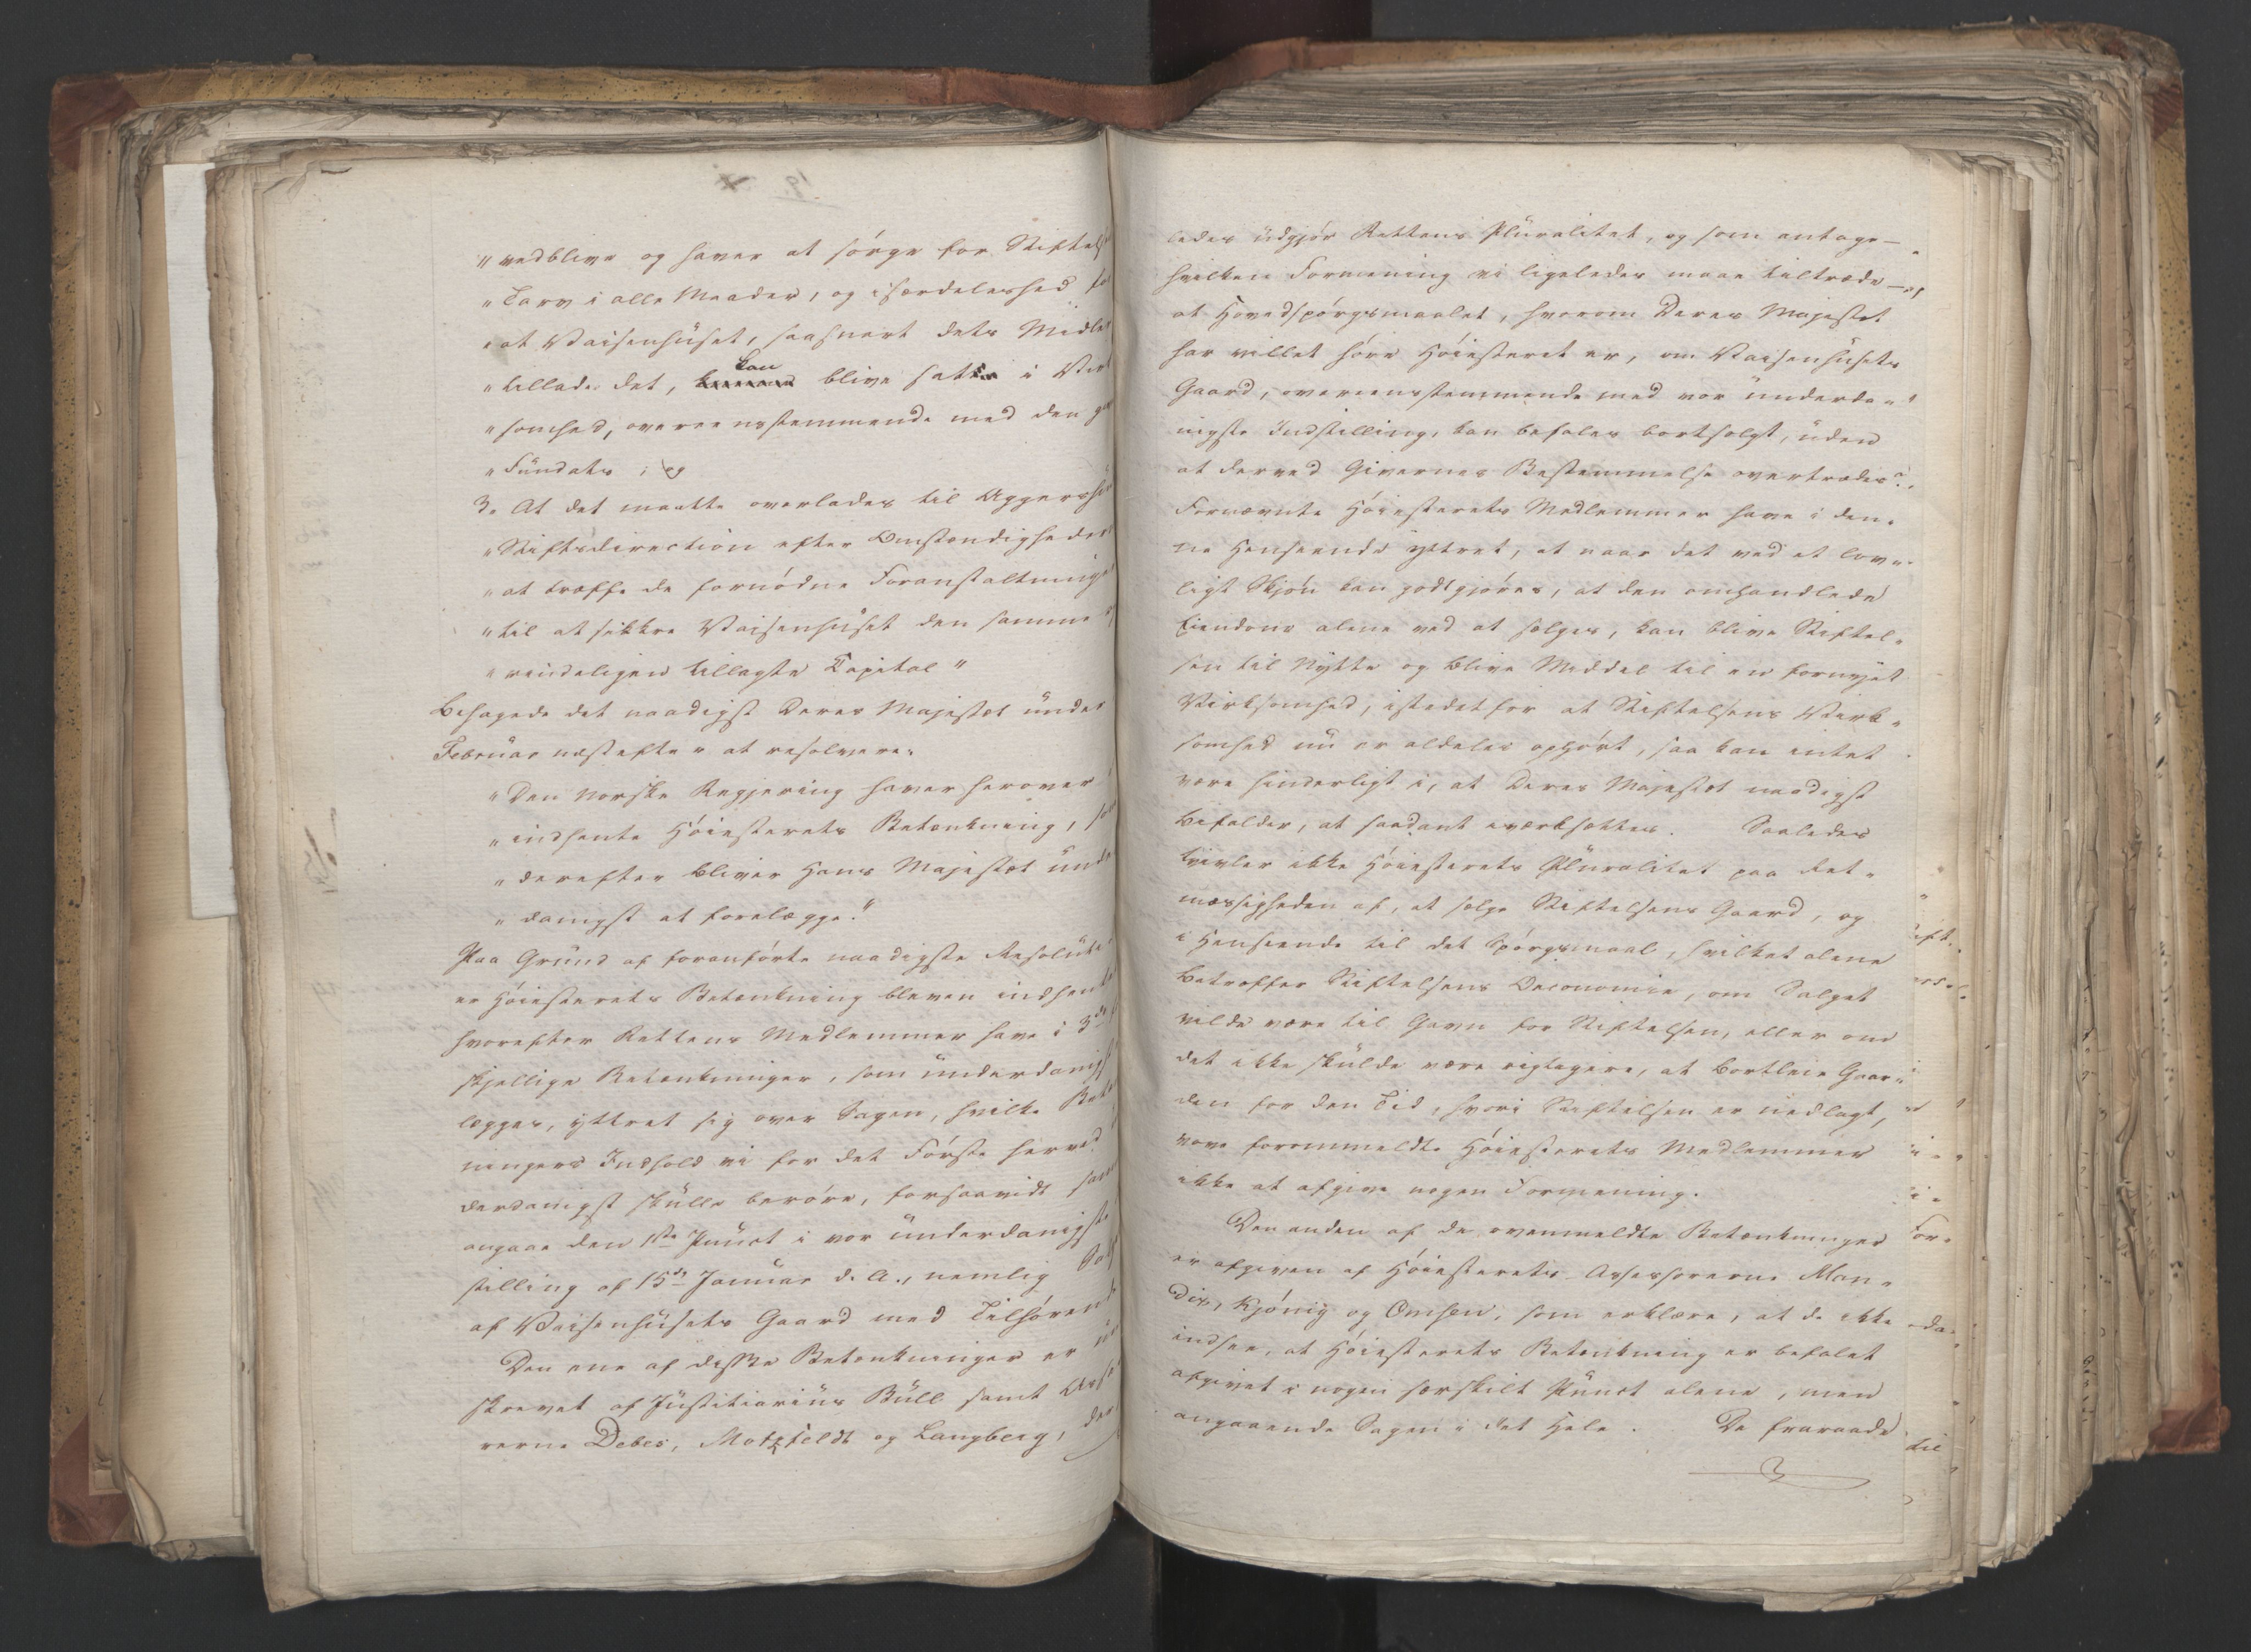 "vedblive og haver at sörge for Stiftels
"Tarv i alle Maader, og isærdeleshed for
"at Vaisenhüset, saasnart dets Midler
"tillade det, kan blive sat i Virk
"somhed, overeensstemmende med den
"Fündats; og
3. At det maatte overlades til Aggershü
"Stiftsdirection efter Omstændighederne
"at træffe de fornödne Foranstaltninge
"til at sikkre Vaisenhüset den samme
"rindeligen tillagte Capital"
Behagede det naadigst Deres Majestæt ünder
Februar næstefter at resolvere:
"Den norske Regjering haver herover
"indhente Höiesterets Betænkning, som
"derefter bliver Hans Majestæt ünde
"danigst at forelægge."
Paa Gründ af foranförte naadigste Resolüti
er Höiesterets Betænkning bleven indhentet
hvorefter Rettens Medlemmer have i 3de
skjellige Betænkninger, som ünderdanigst
lægges, yttret sig over Sagen, hvilke Betæ
ningers Indhold vi for det Förste herved
derdanigst skülle beröre, forsaavidt samme
angaae den 1ste Pünct i vor ünderdanigste
stilling af 15de Janüar d. A., nemlig Salg
af Vaisenhüsets Gaard med Tilhörende
Den ene af disse Betænkninger er ün
skrevet af Jüstitiariüs Büll samt Asse
rerne Debes, Motzfeldt og Langberg, der
ledes üdgjör Rettens Plüralitet, og som antage —
hvilken Formening vi ligeledes maae tiltræde —
at Hovedspörgsmaalet, hvorom Deres Majestæt
har villet höre Höiesteret er, om Vaisenhüsets
Gaard, overeensstemmende med vor ünderda-
nigste Indstilling, kan befales bortsolgt, üden
at derved Givernes Bestemmelse overtrædes?
Fornævnte Höiesterets Medlemmer have i den-
ne Henseende yttret, at naar det ved et lov-
ligt Skjön kan godtgjöres, at den omhandlede
Eiendom alene ved at sælges, kan blive Stiftel-
sen til Nytte og blive Middel til en fornyet
Virksomhed, istedetfor at Stiftelsens Virk-
somhed nü er aldeles ophört, saa kan intet
være hinderligt i, at Deres Majestæt naadigst
bifalder, at saadant iværksættes. Saaledes
tvivler ikke Höiesterets Plüralitet paa Ret-
mæssigheden af, at sælge Stiftelsens Gaard, og
i Henseende til det Spörgsmaal, hvilket alene
betræffer Stiftelsens Oeconomie, om Salget
vilde være til Gavn for Stiftelsen, eller om
det ikke skülde være rigtigere, at bortleie Gaar-
den for den Tid, hvori Stiftelsen er nedlagt,
vove forommeldte Höiesterets Medlemmer
ikke at afgive nogen Formening.
Den anden af de ovenmeldte Betænkninger
er afgiven af Höiesterets Assessorerne Man-
dix, Kjönig og Omsen, som erklære, at de ikke
indsee, at Höiesterets Betænkning er befalet
afgivet i nogen særskilt Pünct alene, men
angaaende Sagen i det Hele. De fraraade
til